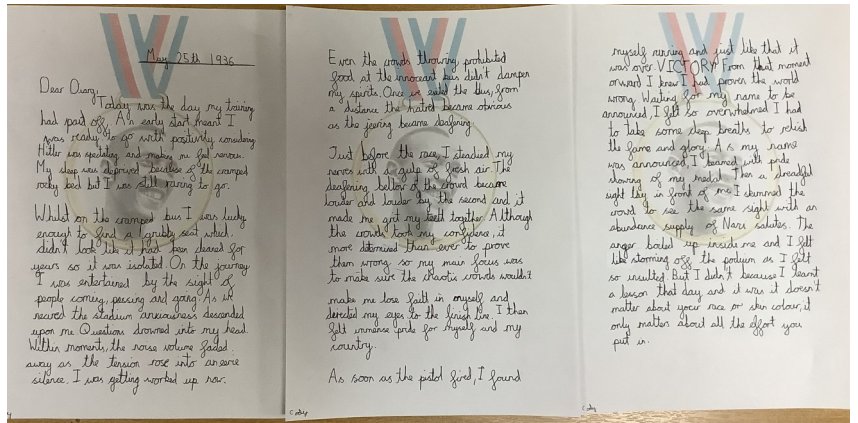 May 25th 1936
Dear Diary,
Today was the day my training
had paid off. An early start meant I
was ready to go with positivity considering
Hitler was spectating and making me feel nervous.
My sleep was deprived because of the cramped
rocky bed but I was still raring to go.
Whilst on the cramped bus I was lucky
enough to find a grubby seat which
didn't look like it had been cleaned for
years so it was isolated. On the journey
I was entertained by the sight of
people coming, passing and going. As we
neared the stadium anxiousness descended
upon me. Questions drowned into my head.
Within moments, the noise volume faded
away as the tension rose into an eerie
silence. I was getting worked up now.
Even the crowds throwing prohibited
food at the innocent bus didn't dampen
my spirits. Once we exited the bus, from
a distance the hatred became obvious
as the jeering became deafening.
Just before the race, I steadied my
nerves with a gulp of fresh air. The
deafening bellow of the crowd became
louder and louder by the second and it
made me grit my teeth together. Although
the crowds took my confidence, it
more determined than ever to prove
them wrong so my main focus was
to make sure the chaotic crowds wouldn't
make me lose faith in myself and
directed my eyes to the finish line. I then
felt immense pride for myself and my
country.
As soon as the pistol fired, I found
Cody
myself running and just like that it
was over VICTORY! From that moment
onward I knew I had proven the world
wrong. Waiting for my name to be
announced, I felt so overwhelmed I had
to take some deep breaths to relish
the fame and glory. As my name
was announced, I beamed with pride
showing of my medal. Then a dreadful
sight lay in front of me. I skimmed the
crowd to see the same sight with an
abundance supply of Nazi salutes. The
anger boiled up inside me and I felt
like storming off the podium as I felt
so insulted. But I didn't because I learnt
a lesson that day and it was it doesn't
matter about your race or skin colour, it
only matters about all the effort you
put in.
Cody